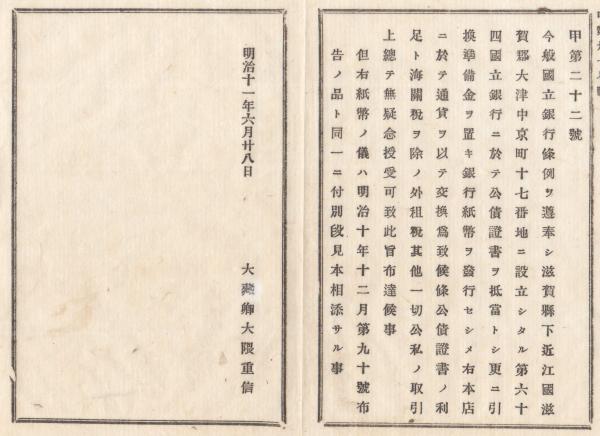 甲第二十二號
今般國立銀行條例ヲ遵奉シ滋賀縣下近江國滋
賀郡大津中京町十七番地ニ設立シタル第六十
四國立銀行ニ於テ公債證書ヲ抵當トシ更ニ引
換準備金ヲ置キ銀行紙幣ヲ發行セシメ右本店
ニ於テ通貨ヲ以テ交換爲致候條公債證書ノ利
足ト海關稅ヲ除ノ外租稅其他一切公私ノ取引
上總テ無疑念授受可致此旨布達候事
但右紙幣ノ儀ハ明治十年十二月第九十號布
告ノ品ト同一ニ付別段見本相添サル事
明治十一年六月廿八日
大藏卿大隈重信